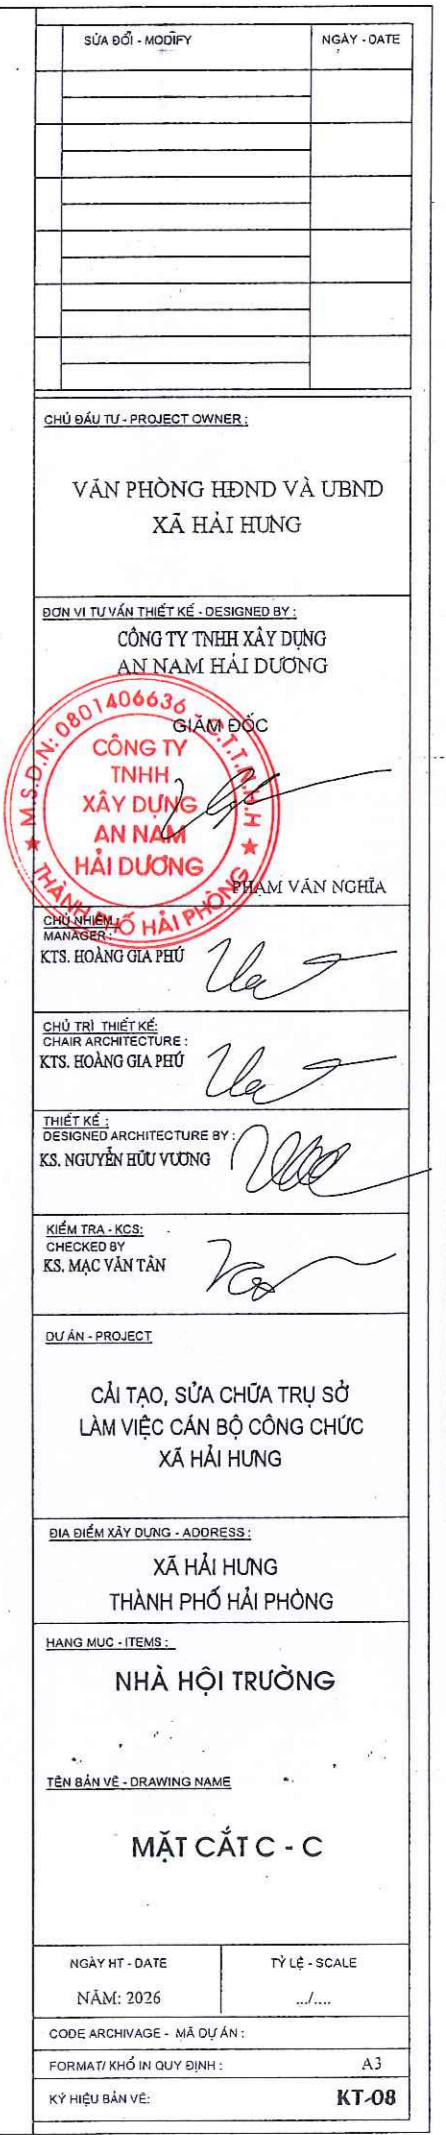 SỬA ĐỔI - MODIFY
NGÀY - DATE
CHỦ ĐẦU TƯ - PROJECT OWNER :
VĂN PHÒNG HĐND VÀ UBND
XÃ HẢI HƯNG
ĐƠN VỊ TƯ VẤN THIẾT KẾ - DESIGNED BY :
CÔNG TY TNHH XÂY DỰNG
AN NAM HẢI DƯƠNG
GIÁM ĐỐC
M.S.D.N: 0801406636 - C.T.T.N.H.H
CÔNG TY
TNHH
XÂY DỰNG
AN NAM
HẢI DƯƠNG
THÀNH PHỐ HẢI PHÒNG
PHẠM VĂN NGHĨA
CHỦ NHIỆM :
MANAGER :
KTS. HOÀNG GIA PHÚ
CHỦ TRÌ THIẾT KẾ:
CHAIR ARCHITECTURE :
KTS. HOÀNG GIA PHÚ
THIẾT KẾ :
DESIGNED ARCHITECTURE BY :
KS. NGUYỄN HỮU VƯƠNG
KIỂM TRA - KCS:
CHECKED BY
KS. MẠC VĂN TÂN
DỰ ÁN - PROJECT
CẢI TẠO, SỬA CHỮA TRỤ SỞ
LÀM VIỆC CÁN BỘ CÔNG CHỨC
XÃ HẢI HƯNG
ĐỊA ĐIỂM XÂY DỰNG - ADDRESS :
XÃ HẢI HƯNG
THÀNH PHỐ HẢI PHÒNG
HẠNG MỤC - ITEMS :
NHÀ HỘI TRƯỜNG
TÊN BẢN VẼ - DRAWING NAME
MẶT CẮT C - C
NGÀY HT - DATE
TỶ LỆ - SCALE
NĂM: 2026
.../....
CODE ARCHIVAGE - MÃ DỰ ÁN :
FORMAT/ KHỔ IN QUY ĐỊNH :
A3
KÝ HIỆU BẢN VẼ:
KT-08